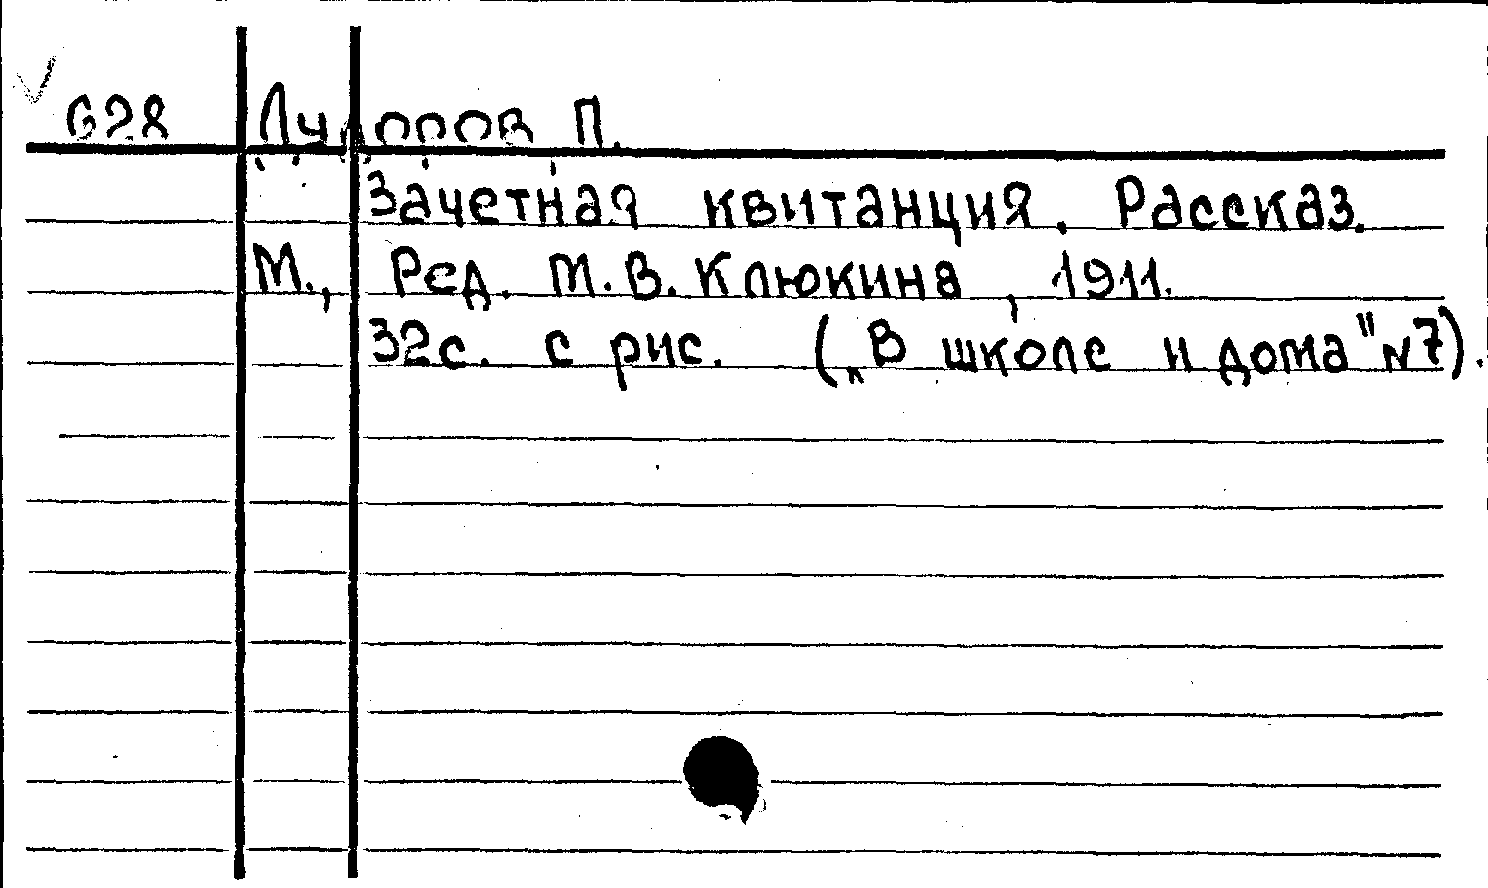 628 Лудоров П.
Зачетная квитанция. Рассказ.
М., Ред. М.В. Клюкина, 1911.
32с. с рис. („В школе и дома" N7).